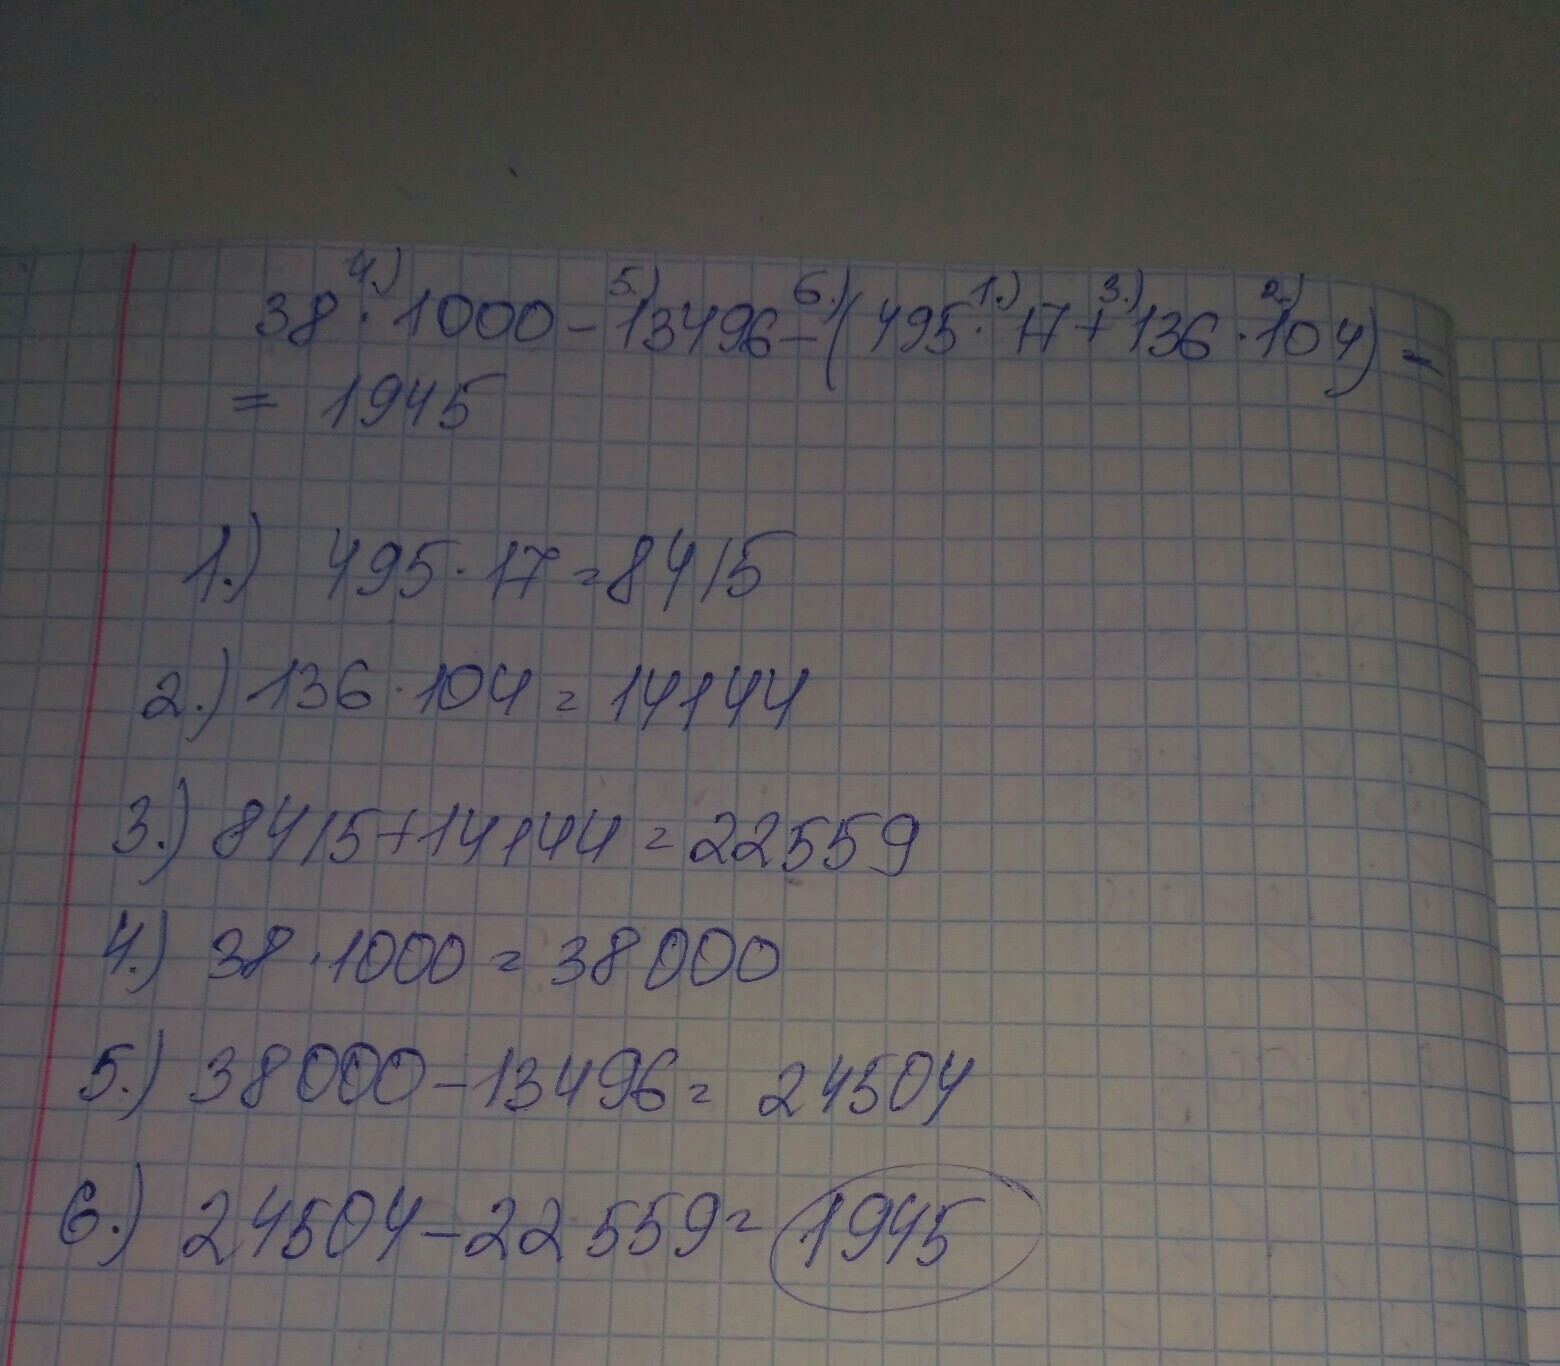 4.) 5.) 6.) 1.) 3.) 2.)
38 · 1000 - 13496 - (495 · 17 + 136 · 104) =
= 1945
1.) 495 · 17 = 8415
2.) 136 · 104 = 14144
3.) 8415 + 14144 = 22559
4.) 38 · 1000 = 38000
5.) 38000 - 13496 = 24504
6.) 24504 - 22559 = 1945